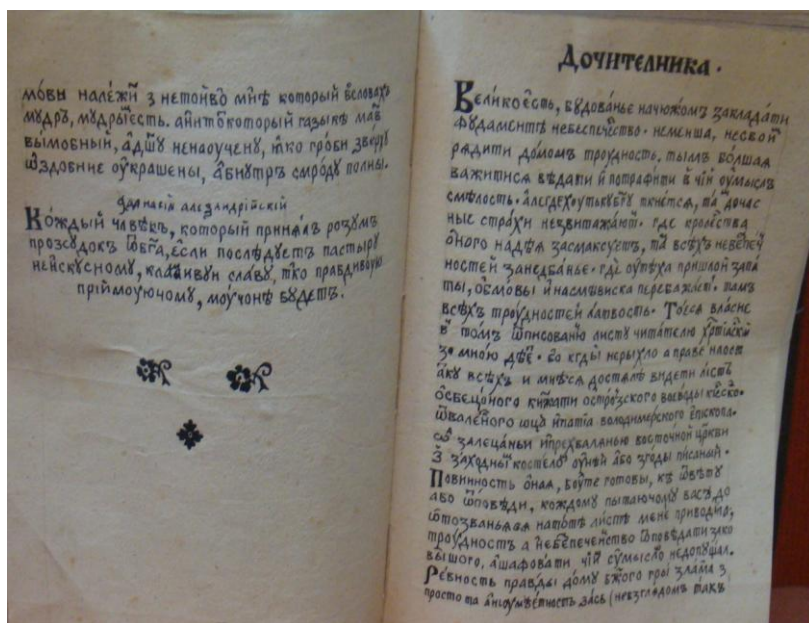 мо́вы нале́жи̑ з нетойво̀ мн҃ѣ который в̾слова́хъ
мꙋдръ, мꙋдры́ естъ. а҆ни то̑ который ꙗзы́къ ма̑
вы́мобный, а҆ дш҃ꙋ ненаꙋченꙋ, ꙗ҆́ко гро́би зве́рхꙋ
ѿздобние оу҆крашены, а҆ внꙋтръ смро́дꙋ полны.
а҆фанасїй алеѯандрі́йскїй
Ко́ждый чл҃вѣкъ, который приня́лъ розꙋмъ
прозсꙋдокъ ѿ бг҃а, е҆сли послѣ́дꙋетъ пастырꙋ
неи҆скꙋсномꙋ, сла́вꙋ, правдивꙋю
прїймоуючомꙋ, моучонъ бꙋдетъ.
До чителника.
Вели́кое е҆сть, бꙋдова́нье на чюжо́мъ заклада́ти
фꙋндаме́нтѣ небеспече́ство. неме́нша, несвои̑
ряди́ти до́момъ троудность. тымъ бо́лшая
ва́житися вѣ́дати и҆ потрафи́ти в̾ чі́й оу҆мыслъ
смѣ́лость. але где ткне́тся, та̑ дочас
ные стра́хи незвитяжаю̑. где кроле́ства
о҆ного надѣ́я засмакꙋетъ, та̑ всѣ́хъ небе́печ
ностей занедба́нье. где оу҆тѣ́ха при́шлой запла
ты, о҆бмо́вы и҆ насмѣ́виска перебажа́е̑. тамъ
всѣ́хъ троу́дностей ла́твость. То́ е҆ся вла́сне
в̾ то́мъ ѿписова́нїю листꙋ чита́телю хр҃тїа́нскїй
з̾ мно́ю дѣ́е̑. бо кгды̀ неры́хло а пра́ве наоста
кꙋ всѣ́хъ и мнѣ ся достало̀ видети ли́стъ
о҆свецо́ного княжати остро́зского воеводы ки́евско̑
ѿ ѡц҃а и҆патїа володи́мерского е҆пи́скопа.
со̑ залеца́ньи и҆ прехвалянью восто́чной цр҃кви
З за́ходны̑ косте́ло̑ оу҆нїй або зго́ды пи́саный.
Пови́нность о҆ная, боу́те гото́вы, къ ѿвѣ́тꙋ
або ѿпо́веди, ко́ждомꙋ пыта́ючомꙋ ва́съ, до
ѿтозва́нья ся на то́тъ ли́стъ мене приво́дило,
троу́дность а небепече́нство ѿповѣ́дати зако
вы́шого, а҆ шафова́ти чі́й оу҆мы́слъ недопꙋща́ло.
Ре́вность пра́вды до́мꙋ бж҃ого з
про́сто та за́сь (невзгля́домъ та́къ